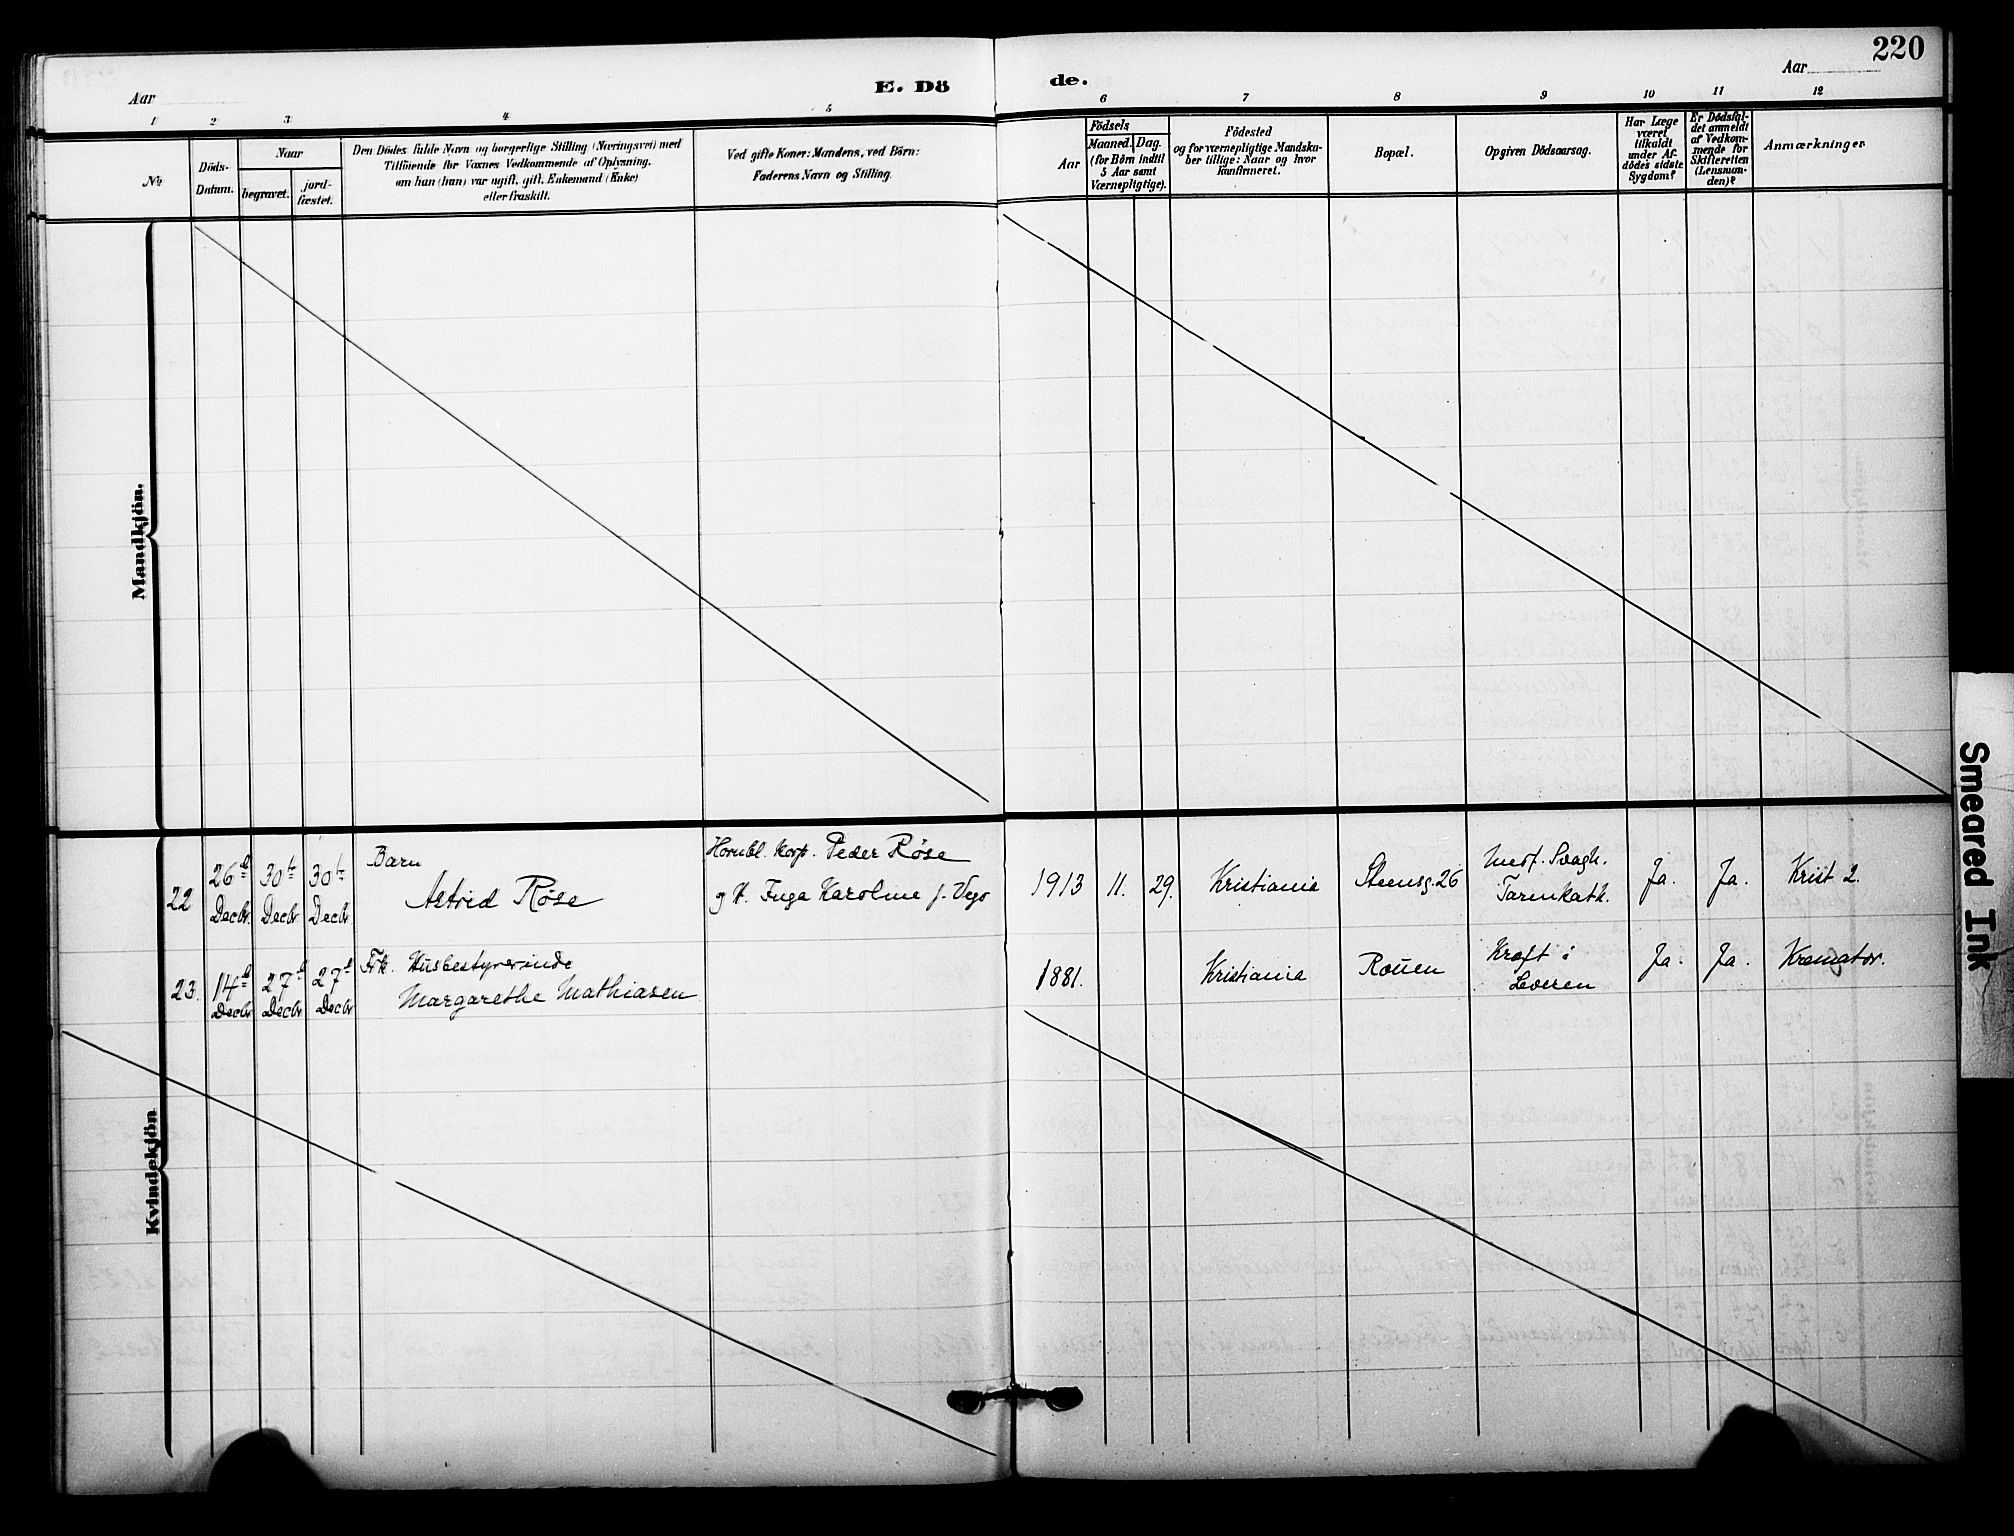 220
Aar
E. Dö
de.
Aar
1 2 3 4 5 6 7 8 9 10 11 12
No
Döds-
Datum.
Naar
begravet.
jord-
fæstet.
Den Dödes fulde Navn og borgerlige Stilling (Næringsvei) med
Tilföiende for Voxnes Vedkommende af Oplysning,
om hun (han) var ugift, gift, Enkemand (Enke)
eller fraskilt.
Ved gifte Koner: Mandens, ved Börn:
Faderens Navn og Stilling.
Födsels
Aar
Maaned.
Dag.
(for Börn indtil
5 Aar samt
Værnepligtige).
Födested
og for værnepligtige Mandska-
ber tillige: Naar og hvor
konfirmeret.
Bopæl.
Opgiven Dödsaarsag.
Har Læge
været
tilkaldt
under Af-
dödes sidste
Sygdom?
Er Dödsfal-
det anmeldt
af Vedkom-
mende for
Skifteretten
(Lensman-
den)?
Anmærkninger
Mandkjön.
Kvindekjön
22 26d Decbr. 30te Decbr 30te Decbr
Barn
Astrid Röse
Hornbl. Korp. Peder Röse
og H. Inga Karoline f.
1913 11. 29.
Kristiania
Steensg. 26
Medf. Svagh.
Tarmkath.
Ja. Ja.
Krist 2.
23. 14d Decbr 27d Decbr 27d Decbr
Frk. Husbestyrerinde
Margarethe Mathiasen
1881.
Kristiania
Rouen
Kræft i
Leveren
Ja. Ja.
Kremator.
Smeared Ink